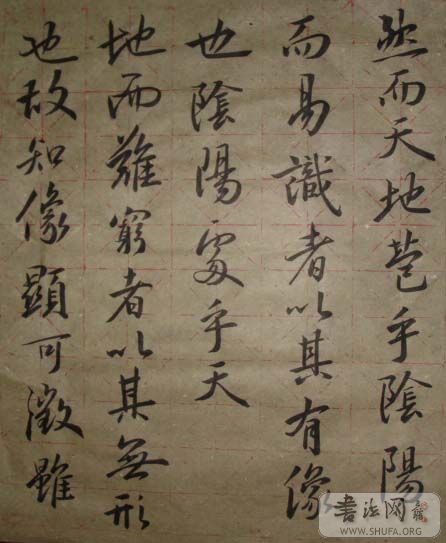 然而天地苞乎陰陽
而易識者以其有像
也陰陽處乎天
地而難窮者以其無形
也故知像顯可徵雖
書法网
WWW.SHUFA.ORG